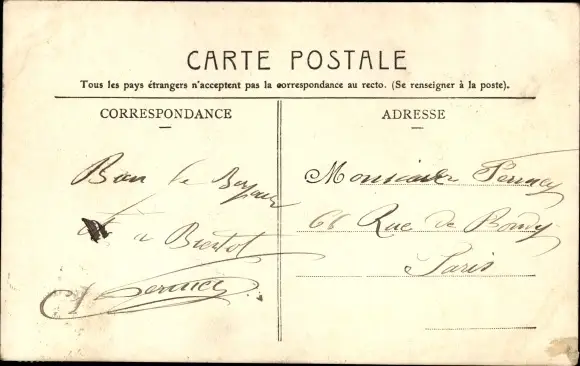 CARTE POSTALE
Tous les pays étrangers n'acceptent pas la correspondance au recto. (Se renseigner à la poste).
CORRESPONDANCE
Bon
a Bientot
ADRESSE
Monsieur Ferncey
66 Rue de Bondy
Paris